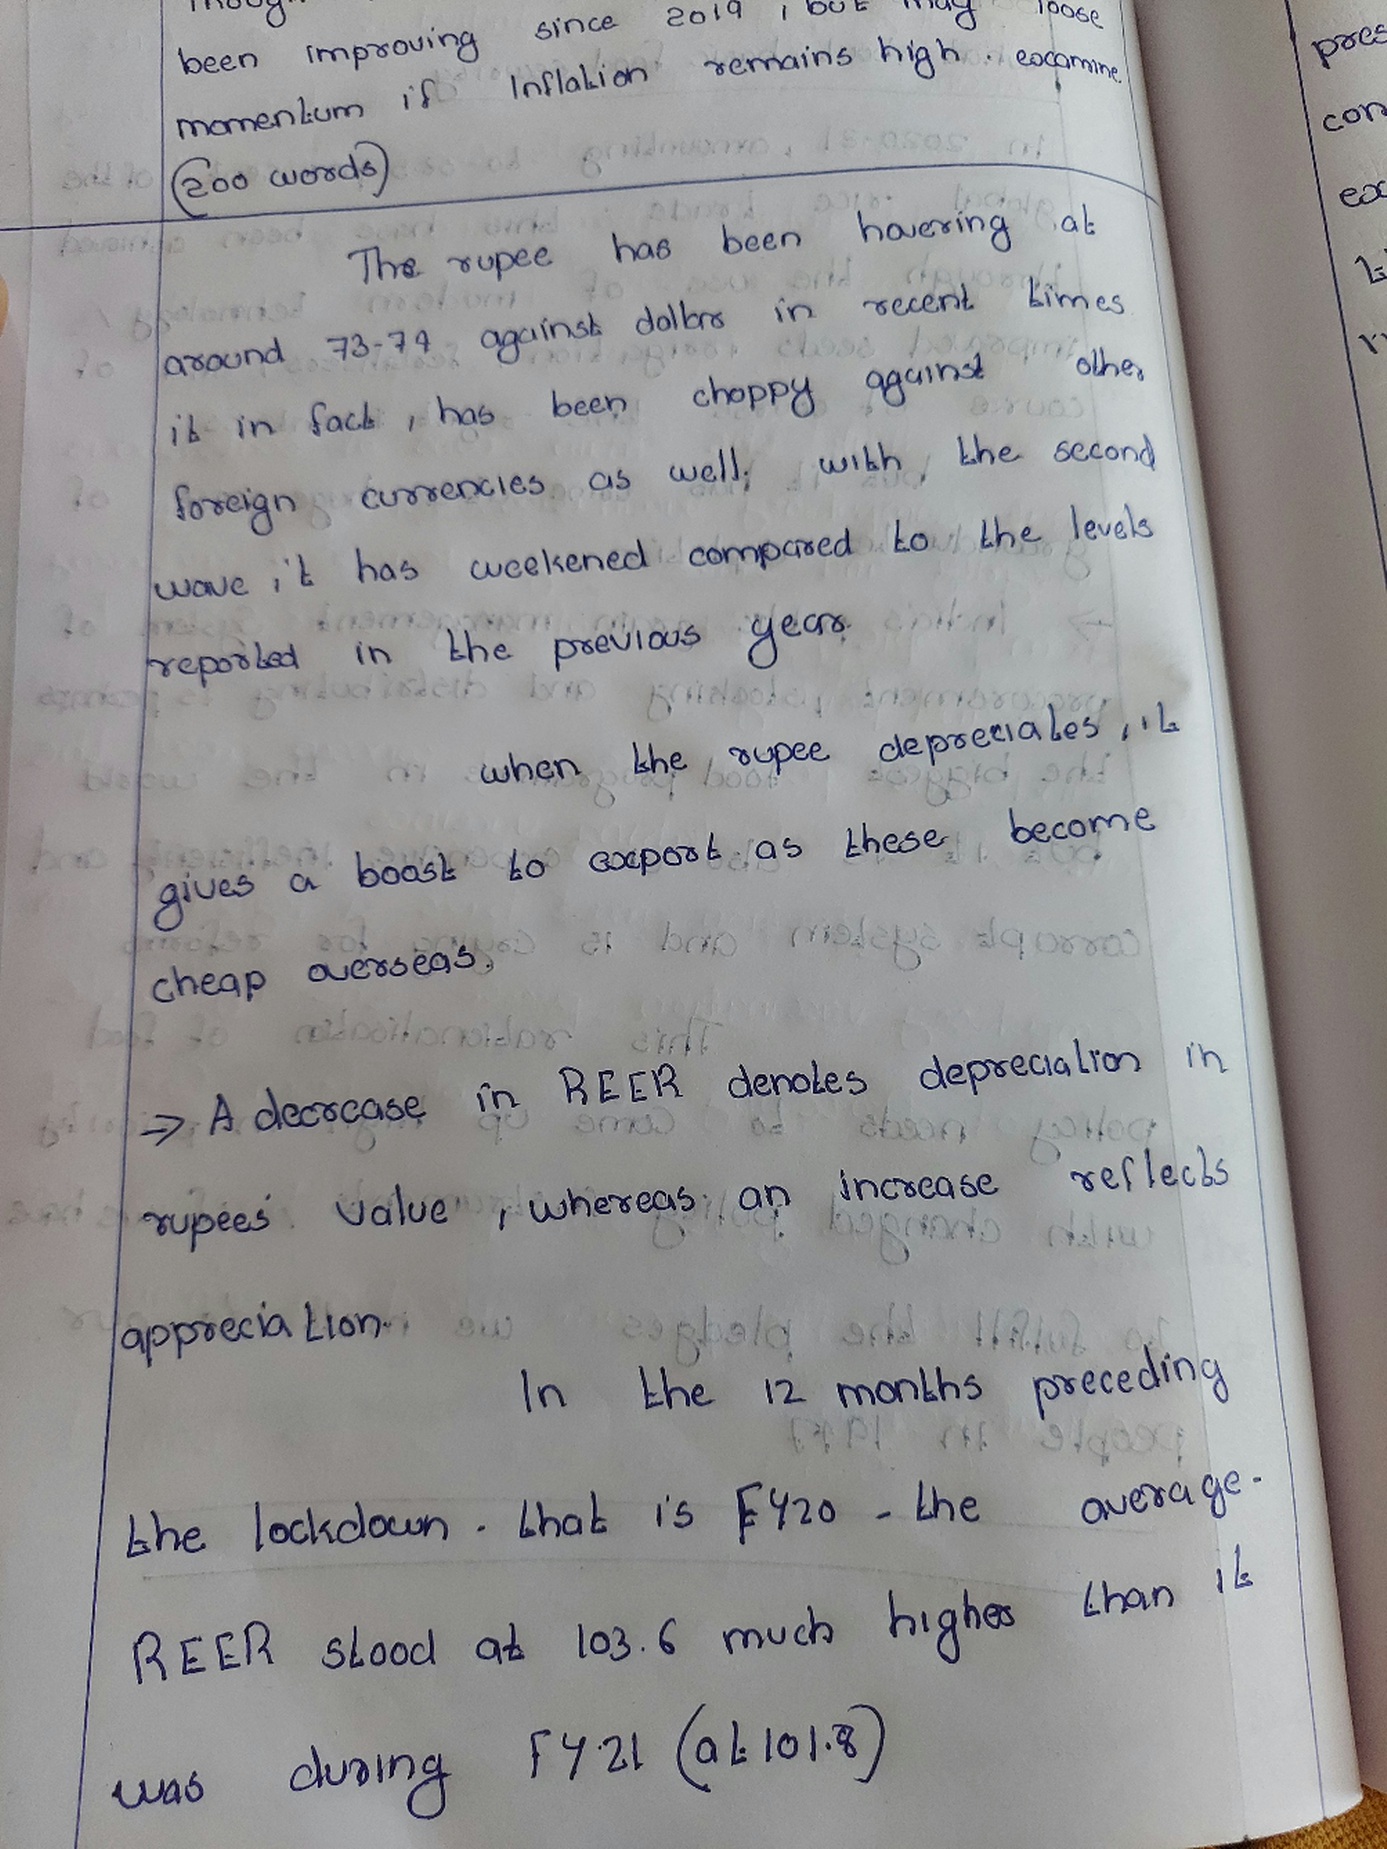 been improving since 2019, but may loose
momentum if Inflation remains high. examine
(200 words)
The rupee has been hovering at
around 73-74 against dollar in recent times
it in fact, has been choppy against other
foreign currencies as well. with the second
wave, it has weekened compared to the levels
reported in the previous year.
when the rupee depreciates, it
gives a boost to export as these become
cheap overseas.
→ A decrease in REER denotes depreciation in
rupees value, whereas an increase reflects
appreciation.
In the 12 months preceding
the lockdown. that is FY20 - the average.
REER stood at 103.6 much higher than it
was during FY21 (at 101.8)
pres
con
ex